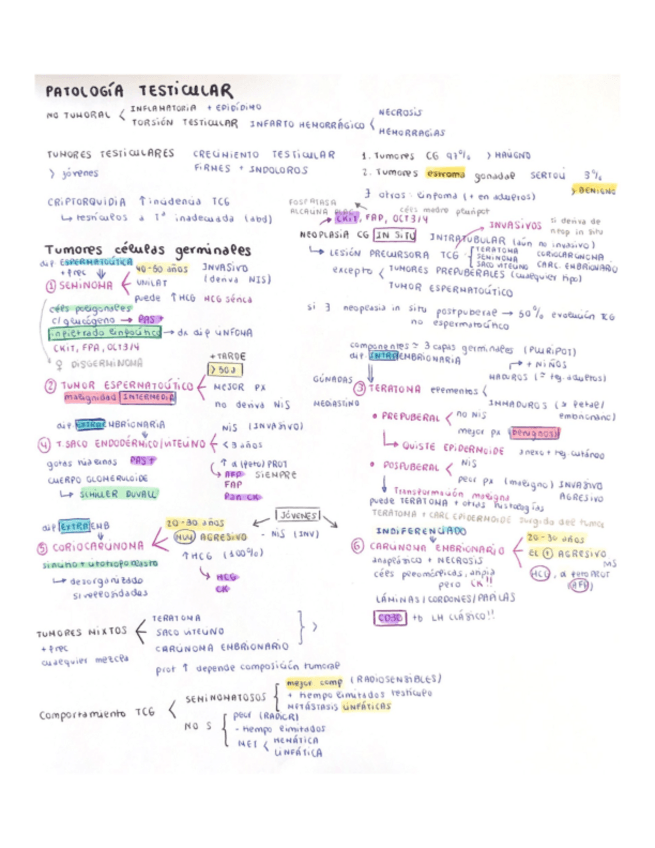 PATOLOGÍA TESTICULAR
NO TUMORAL < INFLAMATORIA + EPIDÍDIMO
TORSIÓN TESTICULAR INFARTO HEMORRÁGICO < NECROSIS
HEMORRAGIAS
TUMORES TESTICULARES CRECIMIENTO TESTICULAR
> jóvenes FIRMES + INDOLOROS
1. Tumores CG 97% > MALIGNO
2. Tumores estroma gonadal SERTOLI 3%
> BENIGNO
3 otros: linfoma (+ en adultos)
CRIPTORQUIDIA ↑ incidencia TCG
↳ testículos a Tª inadecuada (abd)
FOSFATASA
ALCALINA PLAC céls madre pluripot
CKIT, FAP, OCT3/4
NEOPLASIA CG IN SITU INTRATUBULAR (aún no invasivo)
INVASIVOS si deriva de
neop in situ
↳ LESIÓN PRECURSORA TCG
TERATOMA CORIOCARCINOMA
SEMINOMA
SACO VITELINO CARC. EMBRIONARIO
excepto < TUMORES PREPUBERALES (cualquier tipo)
TUMOR ESPERMATOCÍTICO
si ∃ neoplasia in situ postpuberal → 50% evolución TCG
no espermatocítico
Tumores células germinales
dif ESPERMATOCÍTICA
+ frec
① SEMINOMA < 40-50 años INVASIVO
UNILAT (deriva NIS)
puede ↑ HCG HCG sérica
céls poligonales
c/ glucógeno → PAS+
infiltrado linfocítico → dx dif LINFOMA
CKIT, FPA, OCT3/4
♀ DISGERMINOMA
② TUMOR ESPERMATOCÍTICO < + TARDE
> 50a
MEJOR PX
no deriva NIS
malignidad INTERMEDIA
componentes ≃ 3 capas germinales (PLURIPOT)
dif. INTRAEMBRIONARIA
GÓNADAS
MEDIASTINO
③ TERATOMA elementos <
→ + NIÑOS
MADUROS (≃ tej. adultos)
INMADUROS (≃ fetal/
embrionario)
• PREPUBERAL < no NIS
mejor px (benignos)
↳ QUISTE EPIDERMOIDE anexo + tej. cutáneo
• POSPUBERAL < NIS
peor px (maligno) INVASIVO
AGRESIVO
↳ Transformación maligna
puede TERATOMA + otras histologías
TERATOMA + CARC EPIDERMOIDE surgida del tumor
dif EXTRAEMBRIONARIA
④ T. SACO ENDODÉRMICO/VITELINO < NIS (INVASIVO)
< 3 años
↑ α(feto)PROT
gotas hialinas PAS+
CUERPO GLOMERULOIDE
↳ SCHILLER DUVALL
↳ AFP SIEMPRE
FAP
Pan CK
dif EXTRAEMB
⑤ CORIOCARCINOMA < 20-30 años
MUY AGRESIVO
↑ HCG (100%)
← JÓVENES →
- NIS (INV)
sincitio + citotrofoblasto
↳ desorganizado
si vellosidades
↳ HCG
CK
INDIFERENCIADO
⑥ CARCINOMA EMBRIONARIO < 20-30 años
EL + AGRESIVO
NIS
HCG, α fetoPROT
(AFP)
anaplásico + NECROSIS
céls pleomórficas, amplia
pero CK!!
LÁMINAS/CORDONES/PAPILAS
CD30 tb LH CLÁSICO!!
TUMORES MIXTOS <
+ frec
cualquier mezcla
TERATOMA
SACO VITELINO
CARCINOMA EMBRIONARIO
prot ↑ depende composición tumoral
Comportamiento TCG <
SEMINOMATOSOS
mejor comp (RADIOSENSIBLES)
+ tiempo limitados testículo
METÁSTASIS LINFÁTICAS
NO S
peor (RADIOR)
- tiempo limitados
MET < HEMÁTICA
LINFÁTICA